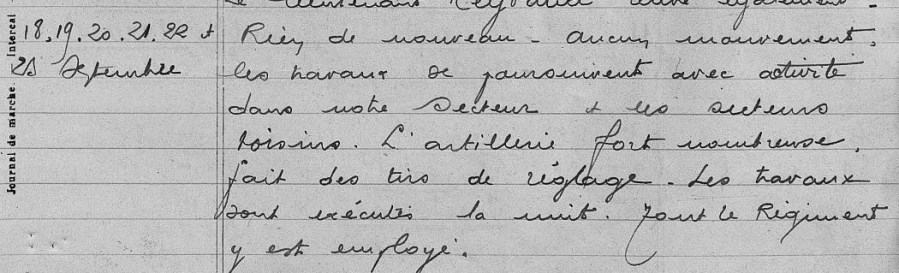 18, 19. 20. 21. 22 +
Septembre
Rien de nouveau - aucun mouvement.
les travaux se poursuivent avec activité
dans notre secteur + les secteurs
voisins. L'artillerie fort nombreuse,
fait des tirs de réglage. Les travaux
sont exécutés la nuit. Tout le Régiment
y est employé.
Journal de marche. Intercal